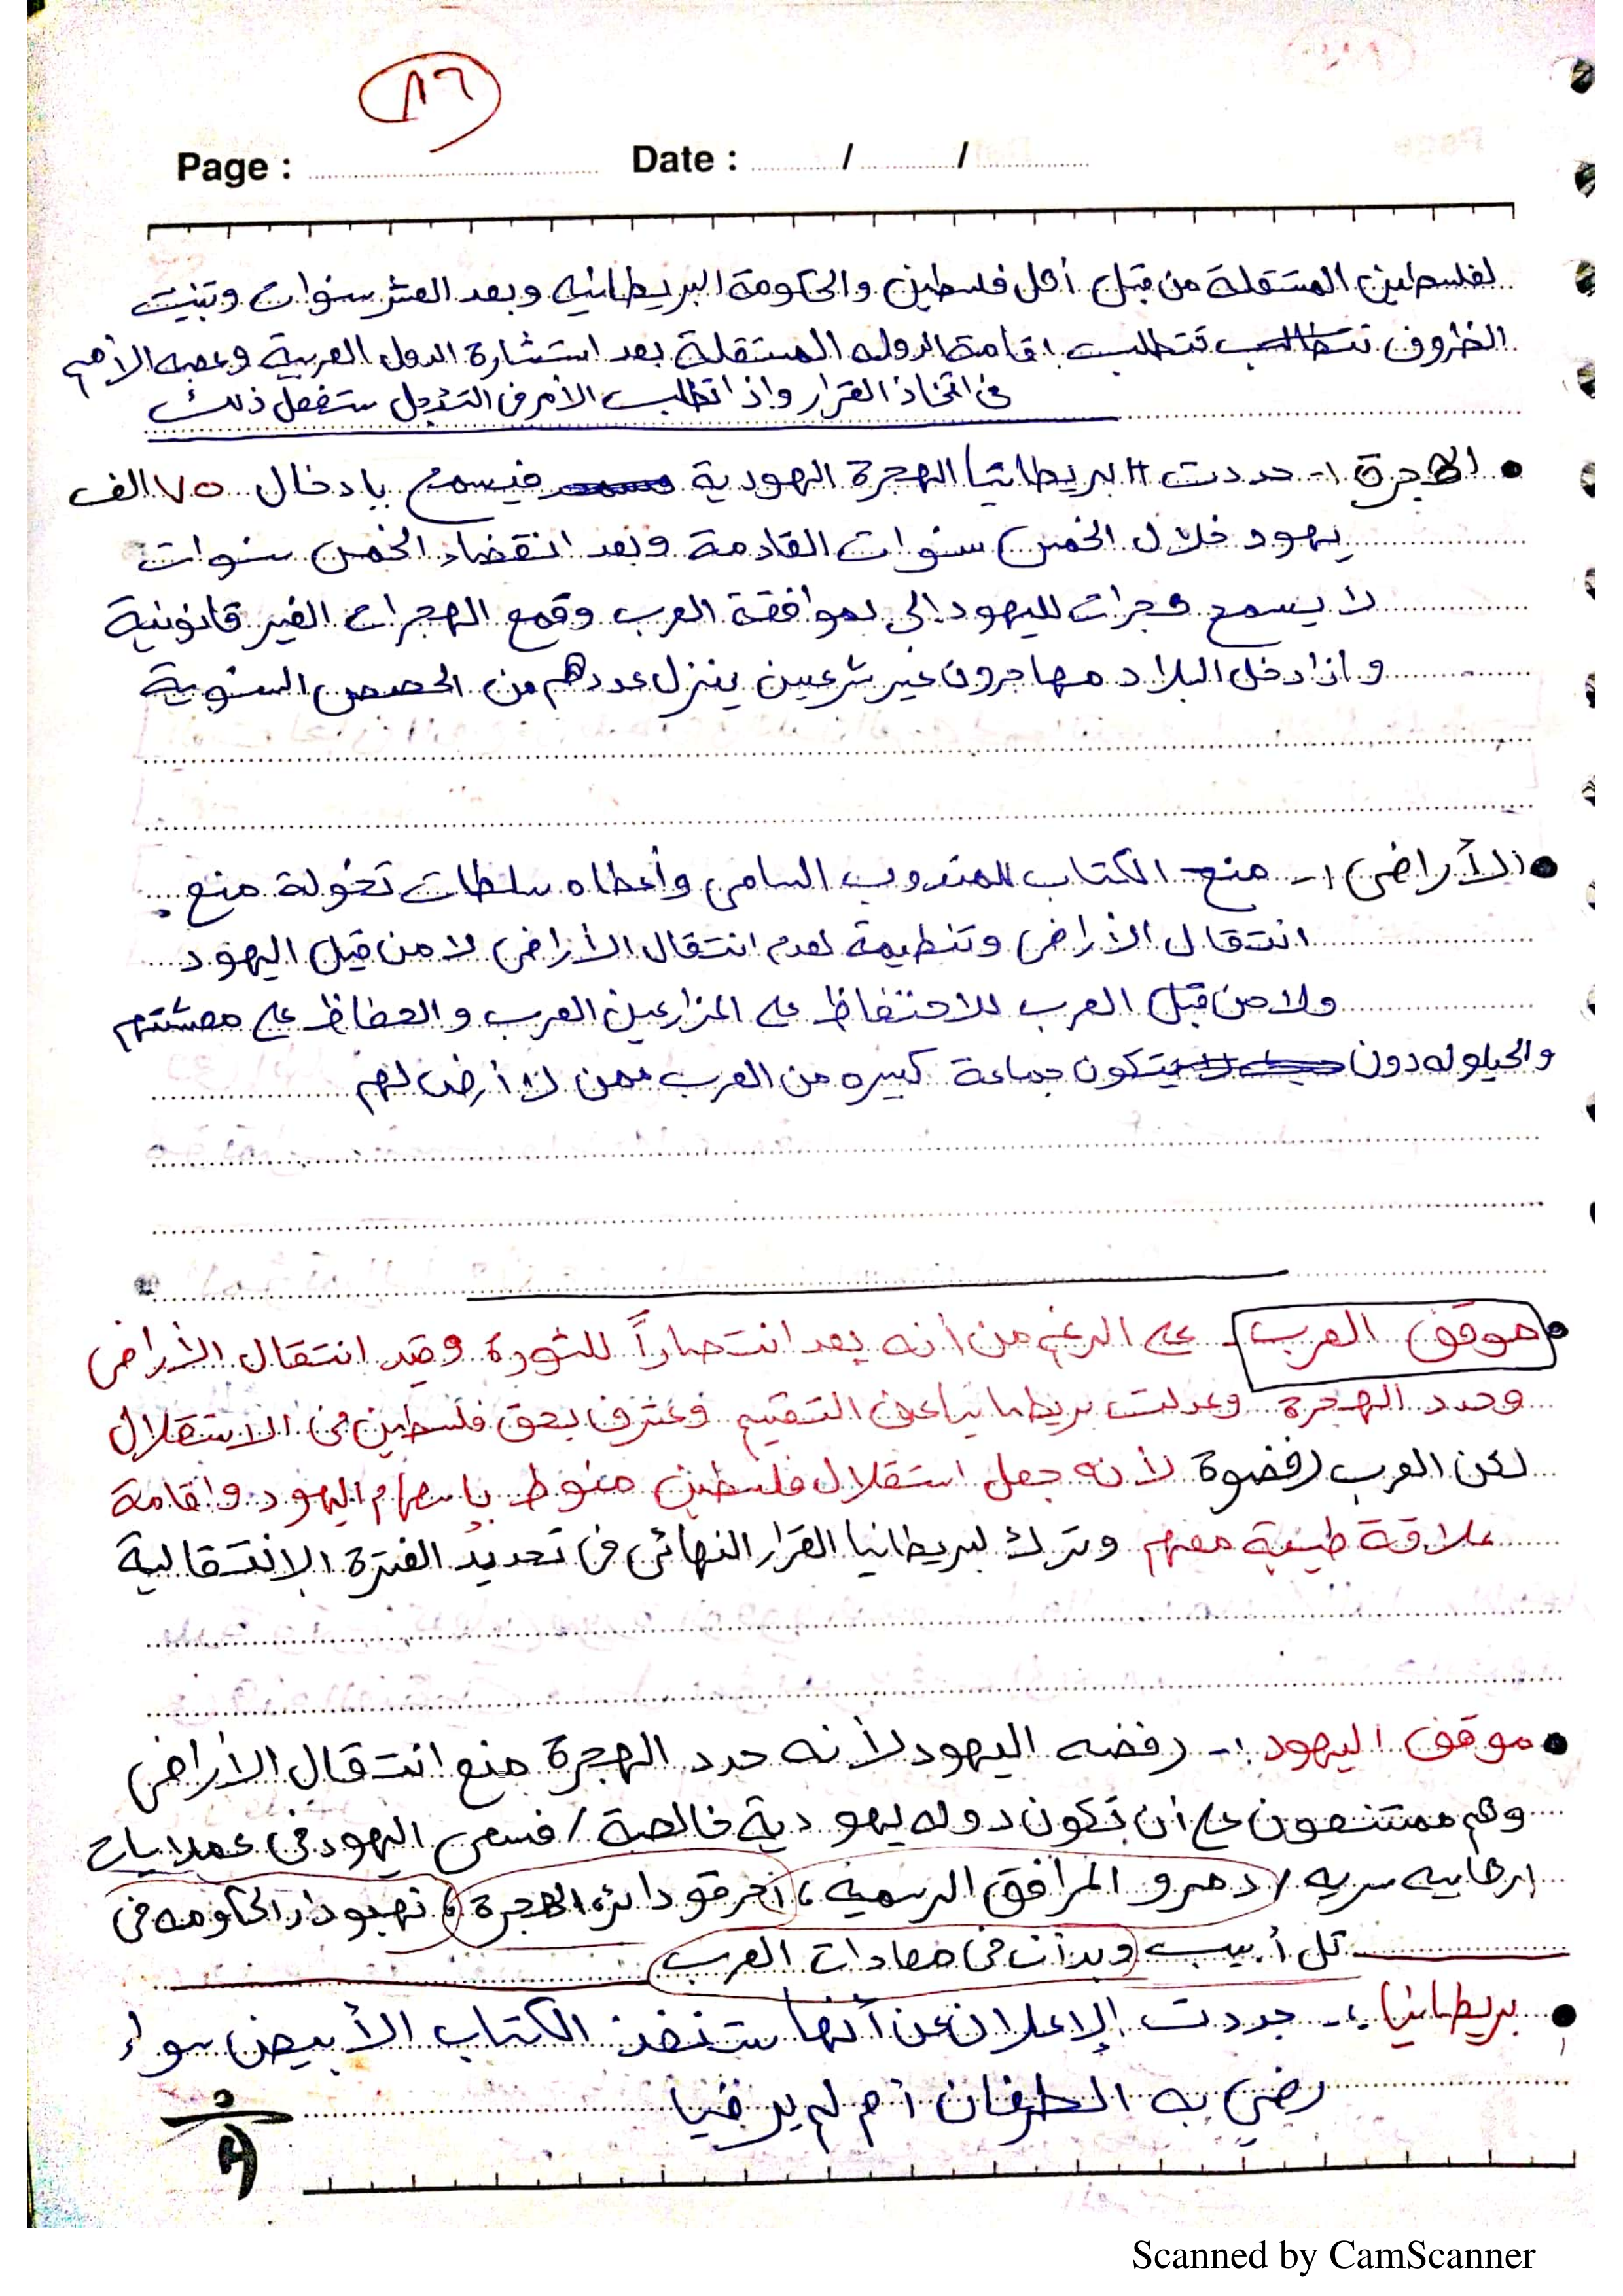 ١٦
Page : Date : / /
لفلسطين المستقلة من قبل أهل فلسطين والحكومة البريطانيه وبعد العشر سنوات وتبنيت
الظروف تتطلب اقامة الدوله المستقلة بعد استشارة الدول العربية وعصبه الأمم
فى اتخاذ القرار واذا تطلب الأمر فى التأجل ستفعل ذلك
• الهجرة :- حددت البريطانيا الهجرة اليهودية فيسمح بادخال ٧٥ الف
يهود خلال الخمس سنوات القادمة وبعد انقضاء الخمس سنوات
لا يسمح هجرات لليهود الى بموافقة العرب وقمع الهجرات الغير قانونية
واذا دخل البلاد مهاجرون غير شرعيين ينزل عددهم من الحصص السنوية
• الأراضى :- منح الكتاب للمندوب السامى وأعطاه سلطات تخولة منع
انتقال الأراضى وتنظيمة لعدم انتقال الأراضى لا من قبل اليهود
ولا من قبل العرب للاحتفاظ على المزارعين العرب والحفاظ على معيشتهم
والحيلوله دون يتكون جماعة كبيره من العرب ممن لا أرض لهم
• موقف العرب - على الرغم من أنه يعد انتصاراً للثورة وقيد انتقال الأراضى
وحدد الهجرة وعدلت بريطانيا عن التقسيم وعترف بحق فلسطين فى الاستقلال
لكن العرب رفضوة لأنه جعل استقلال فلسطين منوط باسهام اليهود واقامة
علاقة طيبة معهم وترك لبريطانيا القرار النهائى فى تحديد الفترة الانتقالية
• موقف اليهود :- رفضه اليهود لأنه حدد الهجرة منع انتقال الأراضى
وهم على أن تكون دوله يهودية خالصة / فسعى اليهود فى عملايات
ارهابيه سريه / دمرو المرافق الرسمية ، احرقو دائره الهجرة ، نهبو دار الحكومه فى
تل أبيب وبدأت فى معادات العرب
• بريطانيا :- جددت الإعلان عن أنها ستنفذ الكتاب الأبيض سواء
رضي به الطرفان أم لم يرضيا
Scanned by CamScanner